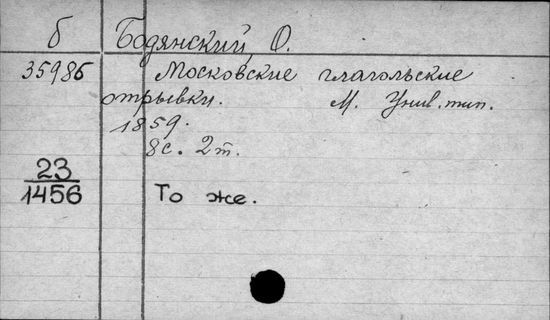 б Бодянский, О.
35986 Московские глагольские
отрывки. М. Унив. тип.
1859.
8с. 2т.
23
1456 То же.